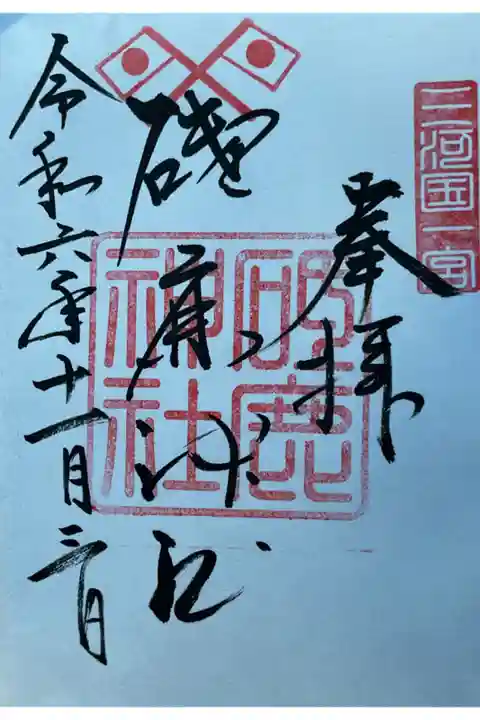 三河国一宮
奉拝
砥鹿神社
砥鹿
神社
令和六年十一月三日